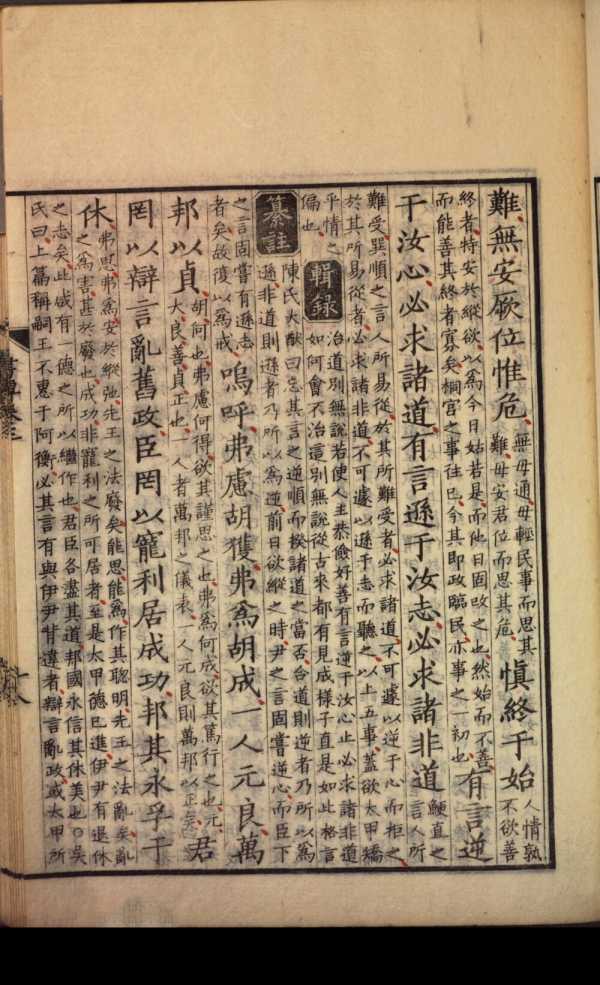 難無安厥位惟危無毋通毋輕民事而思其難毋安君位而思其危慎終于始人情孰不欲善
終者特安於縱欲以為今日姑若是而他日固改之也然始而不善而能善其終者寡矣桐宮之事往已今其即政臨民亦事之一初也有言逆
于汝心必求諸道有言遜于汝志必求諸非道鯁直之言人所
難受巽順之言人所易從於其所難受者必求諸道不可遽以逆于心而拒之於其所易從者必求諸非道不可遽以遜于志而聽之以上五事蓋欲太甲矯
乎情之偏也輯錄治道別無說若使人主恭儉好善有言逆于汝心止必求諸非道如何會不治這別無說從古來都有見成樣子直是如此格言
纂註陳氏大猷曰忘其言之逆順而揆諸道之當否合道則逆者乃所以為遜非道則遜者乃所以為逆前日欲縱之時尹之言固嘗逆心而臣下
之言固嘗有遜志者矣故復以為戒嗚呼弗慮胡獲弗為胡成一人元良萬
邦以貞胡何也弗慮何得欲其謹思之也弗為何成欲其篤行之也元大良善貞正也一人者萬邦之儀表一人元良則萬邦以正矣君
罔以辯言亂舊政臣罔以寵利居成功邦其永孚于
休弗思弗為安於縱弛先王之法廢矣能思能為作其聰明先王之法亂矣亂之為害甚於廢也成功非寵利之所可居者至是太甲德已進伊尹有退休
之志矣此咸有一德之所以繼作也君臣各盡其道邦國永信其休美也○吳氏曰上篇稱嗣王不惠于阿衡必其言有與伊尹甘違者辯言亂政或太甲所